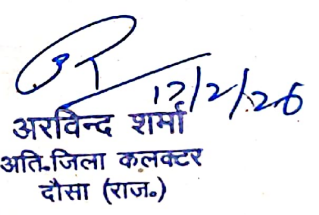 12/2/26
अरविन्द शर्मा
अति.जिला कलक्टर
दौसा (राज०)